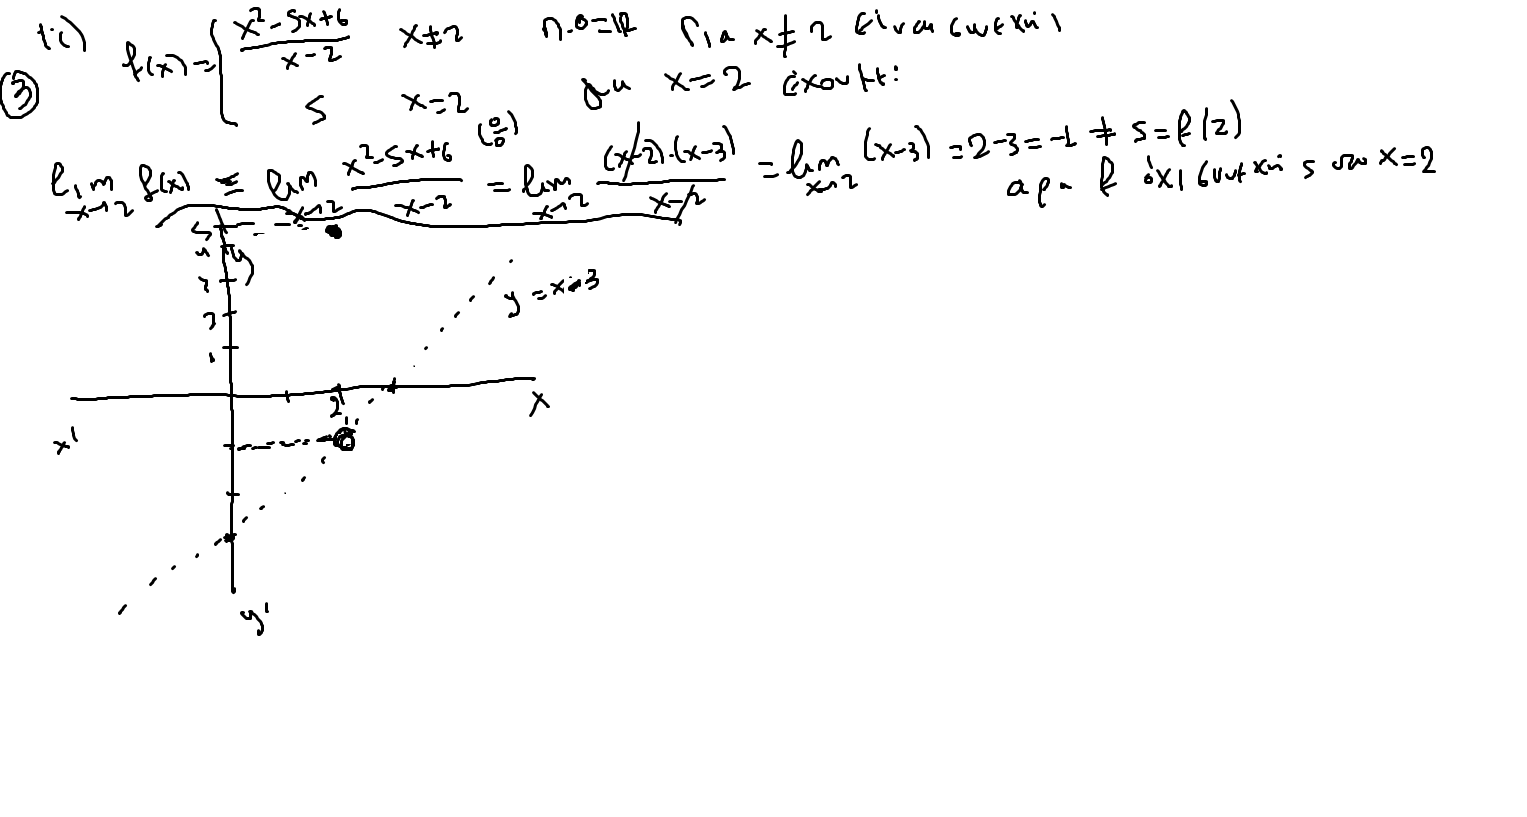 ii) f(x) = { (x²-5x+6)/(x-2) x≠2 Π.Ο=ℝ Για x≠2 είναι συνεχής
③ 5 x=2 για x=2 έχουμε:
lim x→2 f(x) = lim x→2 (x²-5x+6)/(x-2) (0/0) = lim x→2 (x-2)·(x-3)/(x-2) = lim x→2 (x-3) = 2-3 = -1 ≠ 5 = f(2)
άρα f όχι συνεχής στο x=2
5
4
y
y = x-3
1
2
x
x'
y'